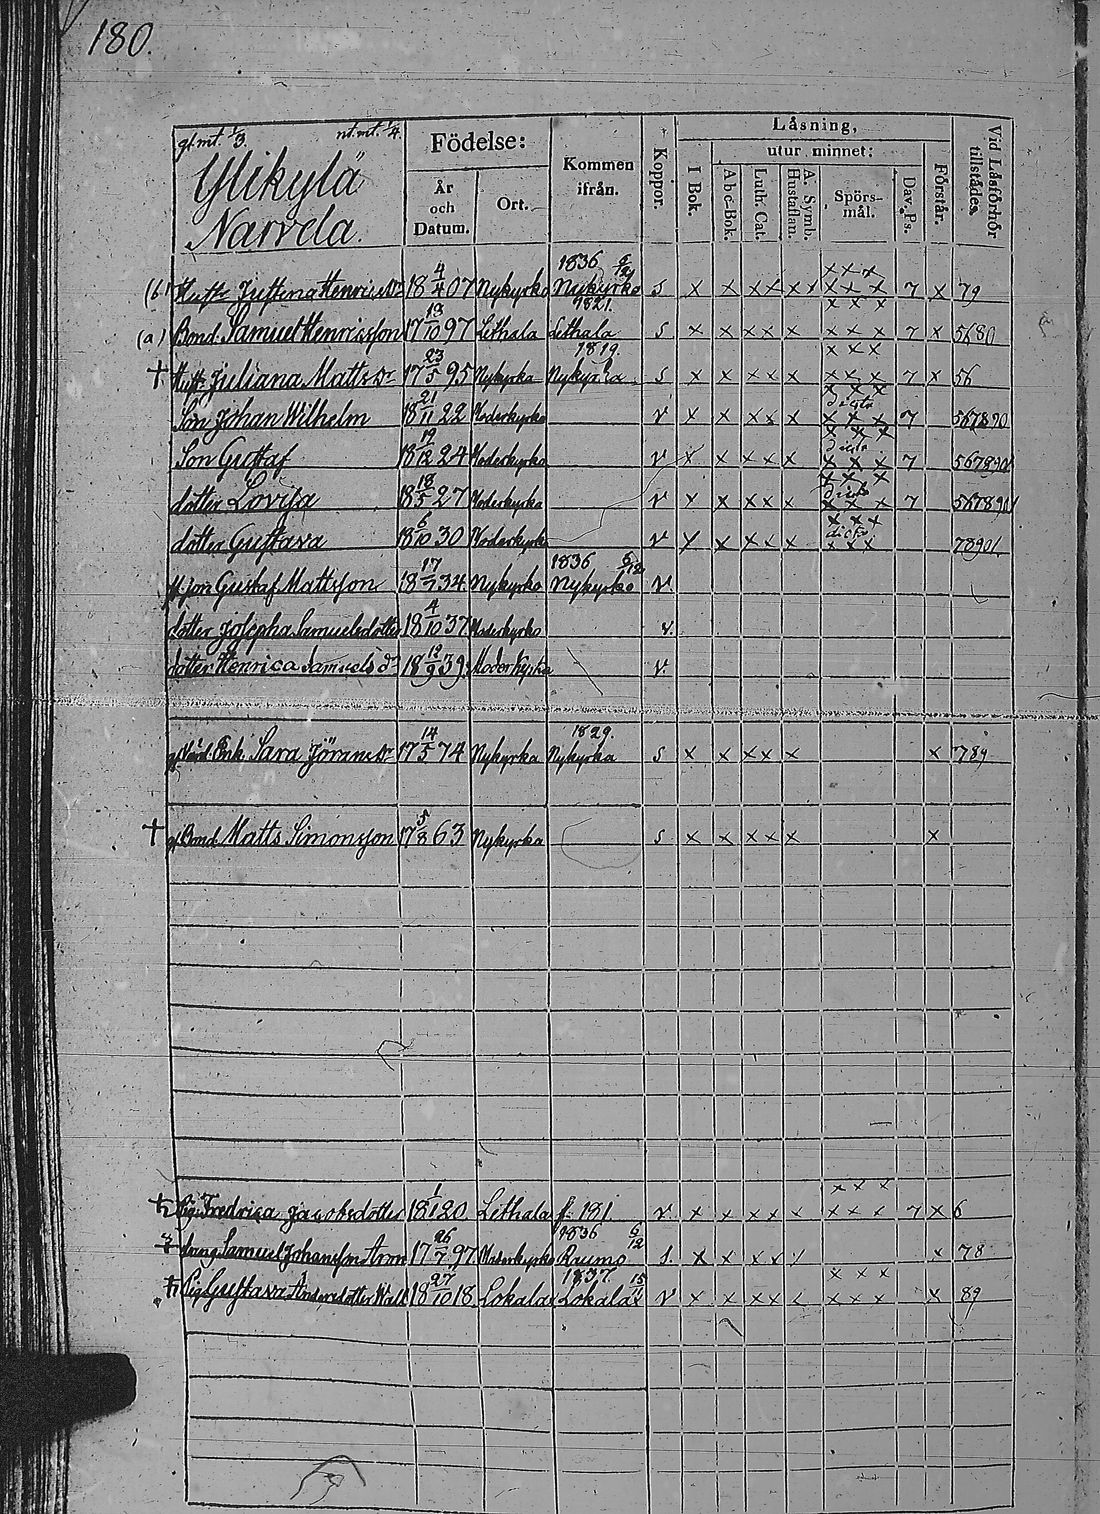 180.
gl. mt. 1/3. nt. mt. 1/4.
Ylikylä
Narvela.
Födelse:
År och Datum.
Ort.
Kommen ifrån.
Koppor.
Läsning,
I Bok.
utur minnet:
A b c-Bok.
Luth. Cat.
A. Symb. Hustaflan.
Spörsmål.
Dav. Ps.
Förstår.
Vid Läsförhör tillstädes.
(b) Hustr. Justina Henricsdr 18 4/4 07 Nykyrko 1836 Nykyrko s x x x x x x x x x x x x x x 7 x 79
(a) Bond. Samuel Henricsson 17 13/10 97 Lethala 1821. Lethala s x x x x x x x x 7 x 5680
† Hustr. Juliana Mattsdr 17 23/5 95 Nykyrka 1819. Nykyrka s x x x x x x x x x x x 7 x 56
Son Johan Wilhelm 18 21/11 22 Moderkyrko v x x x x x x x x x dicto x x x 7 567890
Son Gustaf 18 19/12 24 Moderkyrko v x x x x x x x x dicto x x x 7
dotter Lovisa 18 18/5 27 Moderkyrko v x x x x x x x x dicto x x x 7
dotter Gustava 18 6/10 30 Moderkyrko v x x x x x x x x dicto x x x 78901.
Gustaf Mattsson 18 17/7 34 Nykyrko 1836 6/12 Nykyrko v
dotter Josepha Samuelsdotter 18 4/10 37 Moderkyrko v.
dotter Henrica Samuelsdr 18 12/9 39 Moderkyrka v.
Enk. Sara Jöransdr 17 14/5 74 Nykyrka 1829. Nykyrka s x x x x x x 789
† Bond. Matts Simonsson 17 5/8 63 Nykyrka s x x x x x x
Pig. Fredrica Jacobsdotter 18 1/1 20 Lethala f. 181 v. x x x x x x x x x x x 7 x 6
Dräng Samuel Johansson Aron 17 26/7 97 Moderkyrko 1836 6/12 Raumo s. x x x x x 78
Pig. Gustava Andersdotter Wall 18 27/10 18 Lokalax 1837. Lokalax v x x x x x x x x x x 89